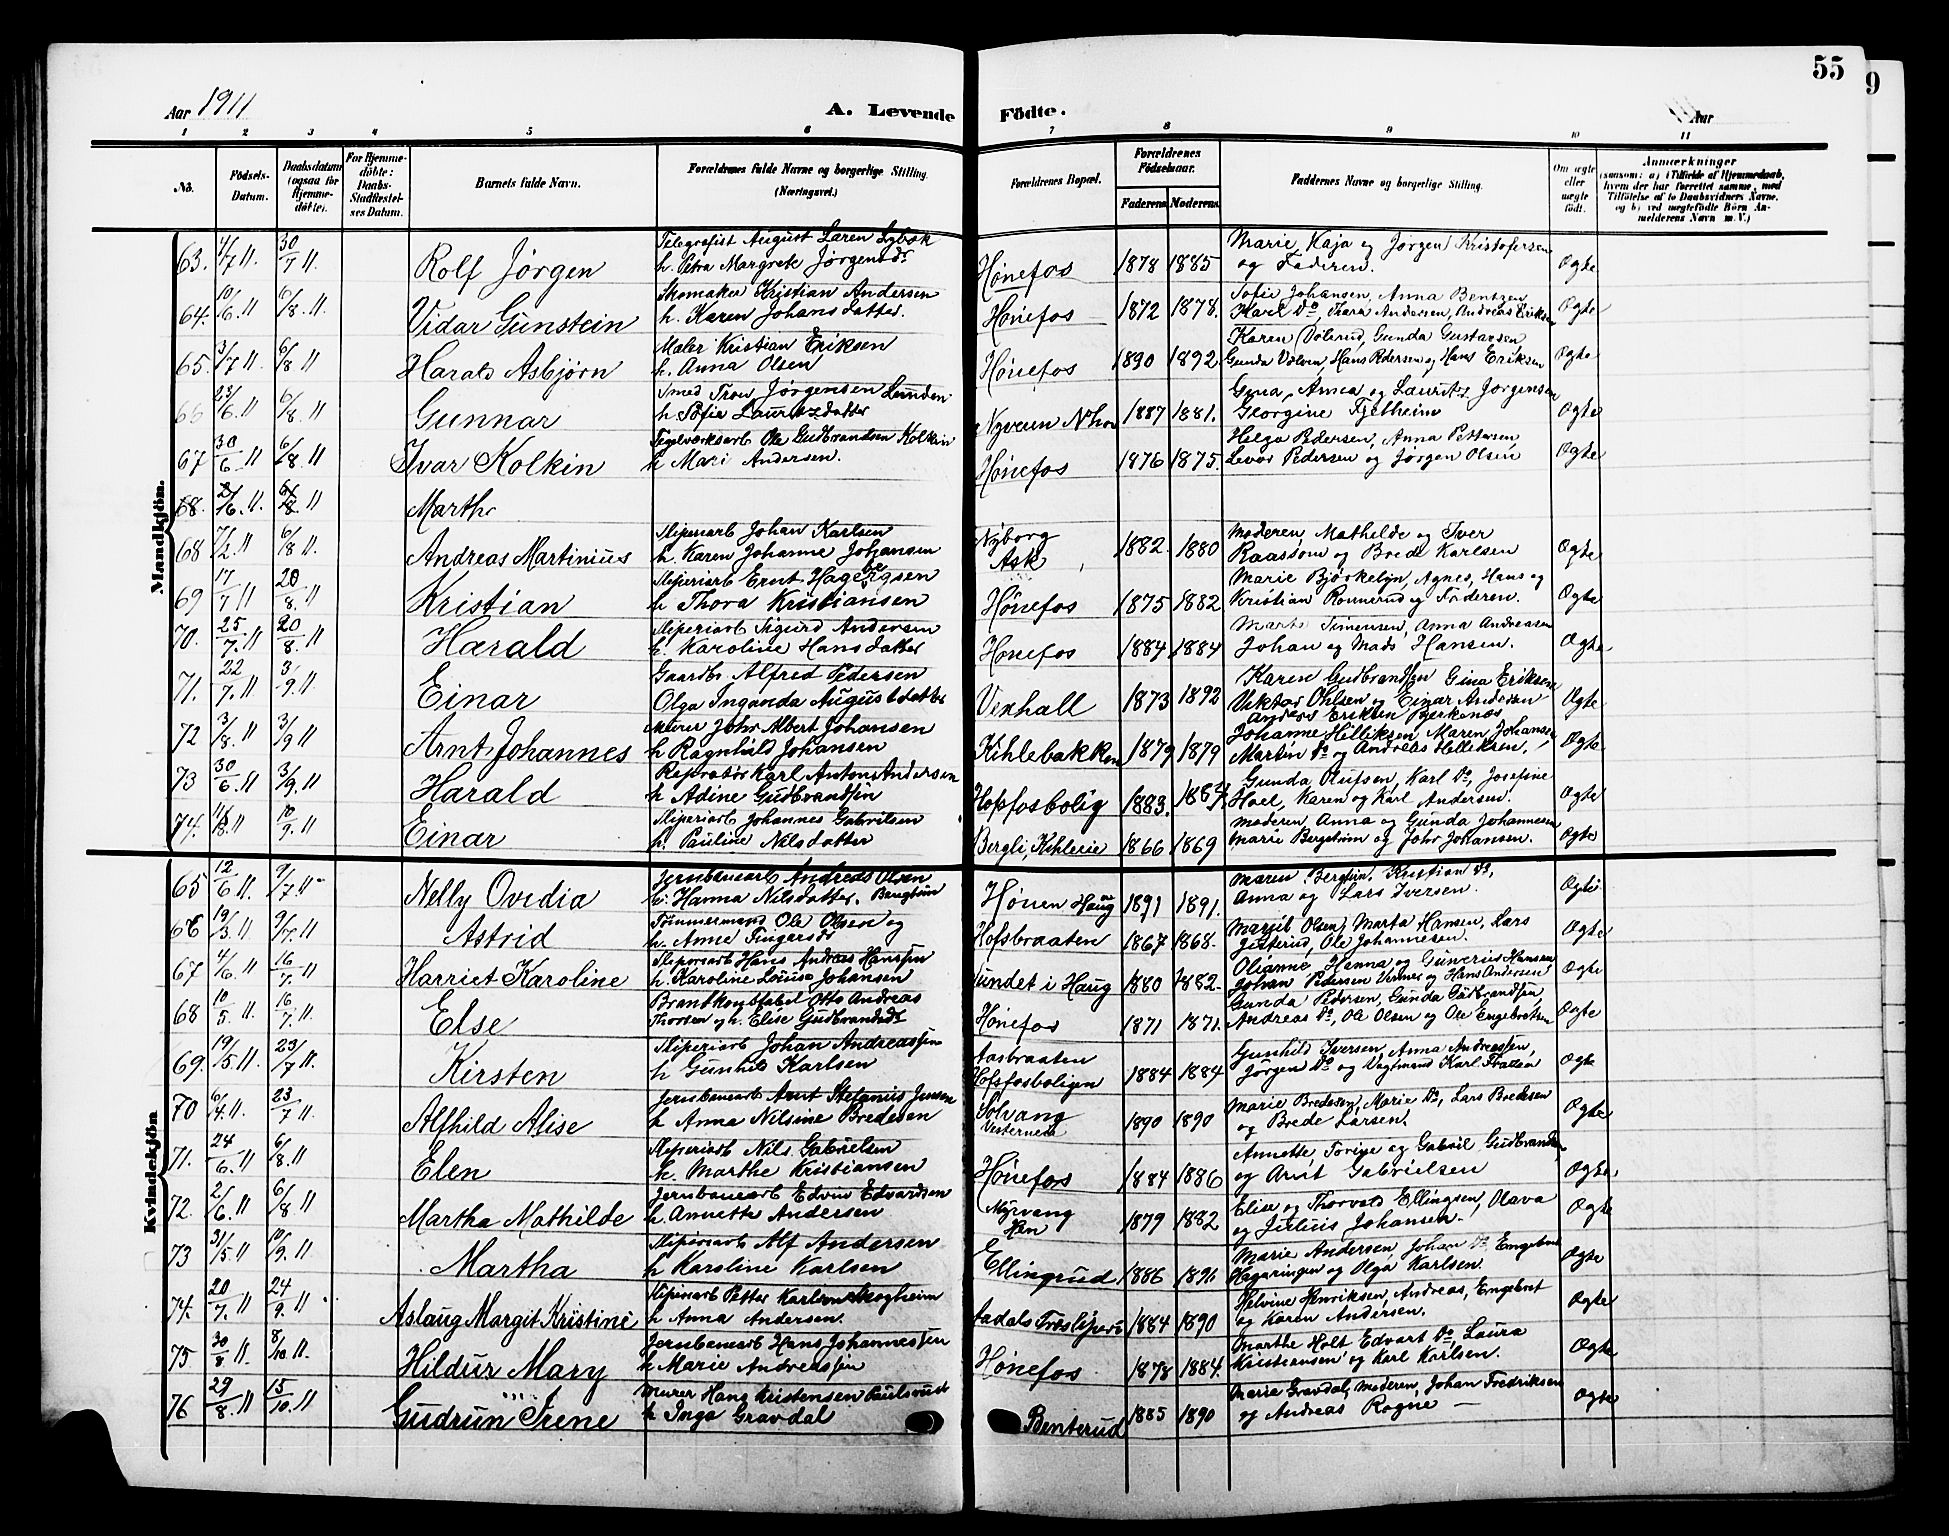 55
9
Aar 1911
A. Levende Födte.
Aar
1 2 3 4 5 6 7 8 9 10 11
No.
Födsels-Datum.
Daabsdatum (ogsaa for Hjemme-döbte).
For Hjemme-döbte: Daabs-Stadfæstelses Datum.
Barnets fulde Navn.
Forældrenes fulde Navne og borgerlige Stilling. (Næringsvei.)
Forældrenes Bopæl.
Forældrenes Födselsaar.
Faderens Moderens
Faddernes Navne og borgerlige Stilling.
Om ægte eller uægte födt.
Anmærkninger
(saasom: a) i Tilfælde af Hjemmedaab, hvem der har forrettet samme, med Tilföielse af to Daabsvidners Navne. og b) ved uægtefödte Börn Anmelderens Navn m. V.)
Mandkjön.
63. 4/7 11. 30/7 11. Rolf Jörgen
Telegrafist August Laren Lybæk
h. Petra Margrete Jörgensdr
Hönefos 1878 1885
Marie, Kaja og Jörgen Kristofersen
og Faderen. Ægte
64. 10/6 11. 6/8 11. Vidar Gunstein
Skomaker Kristian Andersen
h. Karen Johansdatter
Hönefos 1872 1878.
Sofie Johansen, Anna Bentzen
Karl Do, Andersen, Andreas Eriksen Ægte
65. 3/7 11. 6/8 11 Harald Asbjörn
Maler Kristian Eriksen
h. Anna Olsen
Hönefos 1890 1892
Karen, Gunda Gustavsen
Gunda, Hans Pedersen og Hans Eriksen Ægte
66 23/6 11 6/8 11 Gunnar
Smed Jörgensen Lunden
h Sofie Lauritzdatter
Nyveien 1887 1881.
Gina, Anna og Laurits Jörgensen
Georgine Fjeldheim Ægte
67 30/6 11 6/8 11 Ivar Kolkin
Teglværksarb Ole Gudbrandsen Kolkin
h Mari Andersen.
Hönefos 1876 1875.
Helga Pedersen, Anna Pettersen
Pedersen og Jörgen Olsen Ægte
68. 11. 11 Martha
68 7/2 11. 6/8 11. Andreas Martinius
Sliperiarb Johan Karlsen
h. Karen Johanne Johansen
Nyborg
Ask 1882. 1880
Moderen, Mathilde og Iver
Raassom og Brede Karlsen Ægte
69 17/7 11 20/8 11 Kristian
Sliperiarb Ernt Hagbe
h Thora Kristiansen
Hönefos 1875 1882
Marie Bjørkelyn, Agnes, Hans og
Kristian Ronnerud og Faderen. Ægte
70. 25/7. 11 20/8. 11 Harald
Sliperiarb Sigurd Andersen
h. Karoline Hansdatter
Hönefos 1884 1884
Simensen, Anna Andreasen
Johan og Mads Hansen. Ægte
71. 22/7. 11 3/9. 11. Einar
Gaardbr Alfred Pedersen
Olga Inganda Augustdatter
Vexhall 1873 1892
Karen Gudbrandsen Gina Eriksen
Viktor Ohlsen og Einar Andersen
Anders Eriksen Bjerkenæs Ægte
72 3/8. 11 3/9 11 Arnt Johannes
Murer John Albert Johansen
h Ragnhild Johansen
Kihlebakken 1879 1879
Johanne Helliksen, Maren Johansen
Martin Do og Andreas Helliksen. Ægte
73 30/6. 11 3/9. 11 Harald
Karl Anton Andersen
h Adine Gudbrandsen
Hofsfosbolig 1883. 1884
Gunda Olufsen, Karl Do, Josefine
Hoel, Karen og Karl Andersen. Ægte
74. 11 10/9. 11 Einar
Sliperiarb Johannes Gabrilsen
h. Pauline Nilsdatter
Bergli, Kihlerie 1866 1869
Moderen, Anna og Gunda Johannesen
Marie Bergstrøm og John Johansen. Ægte
Kvindekjön
65 12/6 11. 9/7 11. Nelly Ovedia
Jernbanearb Andreas Olsen
h. Hanna Nilsdatter. Bergtun
Hönen Haug 1891 1891.
Maren Bergtun. Kristian Do,
Anna og Lars Iversen. Ægte
66 19/3 11. 9/7. 11 Astrid
Tømmermand Ole Olsen og
h. Anne Fingarsdr
Hofsbraaten 1867 1868.
Marjit Olsen, Marta Hansen, Lars
Ole Johannesen. Ægte
67 4/6 11 16/7. 11 Harriet Karoline
Sliperiarb Hans Andreas Hansen
h. Karoline Louise Johansen
Sundet i Haug 1880 1882.
Olianne, Hanna og Gunerius Hansen
Johan Pedersen og Hans Andersen Ægte
68 10/5. 11 16/7. 11 Else
Brandkonstabel Otto Andreas
Thorsen og h. Elise Gudbrandsdr
Hönefos 1871 1871.
Gunda Pedersen, Gunda Gudbrandsen,
Andreas Do, Ole Olsen og Ole Engebretsen Ægte
69. 19/5 11. 23/7 11. Kirsten
Sliperiarb Johan Andreassen
h Gunhild Karlsen
Aasbraaten
Hofsfosboligen 1884 1884
Gunhild Iversen, Anna Andreassen,
Jörgen Do og Vagtmand Karl Ægte
70 6/4. 11. 23/7 11. Alfhild Alise
Jernbanearb Arnt Stefanius Jensen
h Anna Nilsine Bredesen
Solvang
Vesternen 1890 1890
Marie Bredesen, Marie Do, Lars Bredesen
og Brede Larsen. Ægte
71. 24/6. 11 6/8. 11 Elen
Sliperiarb Nils Gabrielsen
h. Marthe Kristiansen
Hönefos 1884 1886
Annette, Torine og Gabriel Gudbrandsen
og Arnt Gabrielsen Ægte
72. 2/6. 11 6/8 11 Martha Mathilde
Jernbanearb Edvin Edvardsen
h. Annette Andersen
Myrvang
Hen 1879 1882
Elise og Thorvald Ellingsen, Olava
og Julius Johansen. Ægte
73 31/5 11 10/9. 11. Martha
Sliperiarb Alf Andersen
h Karoline Karlsen
Ellingrud 1886 1891
Marie Andersen, Johan Do, Engebret
Hagaringen og Olga Karlsen. Ægte
74. 20/7. 11 24/9. 11 Aslaug Margit Kristine
Sliperiarb Petter Karlsen Skogheim
h Anna Andersen.
Aadals Træsliperi 1884 1890
Helvine Henriksen, Andreas, Engebret
og Karen Andersen. Ægte
75 30/8 11. 8/10. 11. Hildur Mary
Jernbanearb Hans Johannessen
h Marie Andreassen
Hönefos 1878 1884.
Marthe Holt Edvart Do, Laura
Kristiansen og Karl Karlsen. Ægte
76 29/8. 11 15/10. 11 Gudrun Irene
Murer Hans Kristensen Paulsrud
h Inga Gravdal
Benterud 1885 1890
Marie Gravdal, Moderen, Johan Fredriksen
og Andreas Rogne Ægte